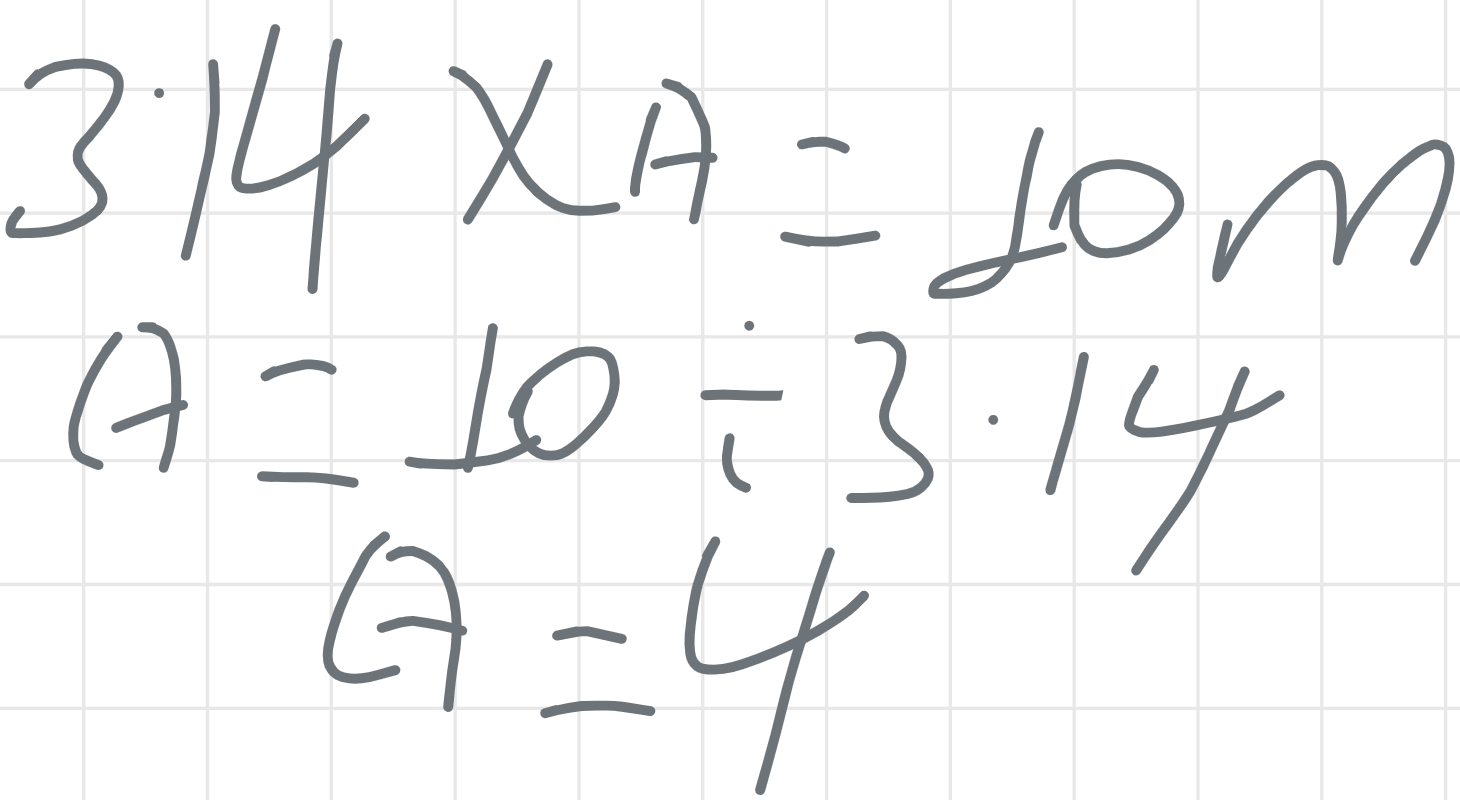 3.14 × A = 10m
A = 10 ÷ 3.14
A = 4